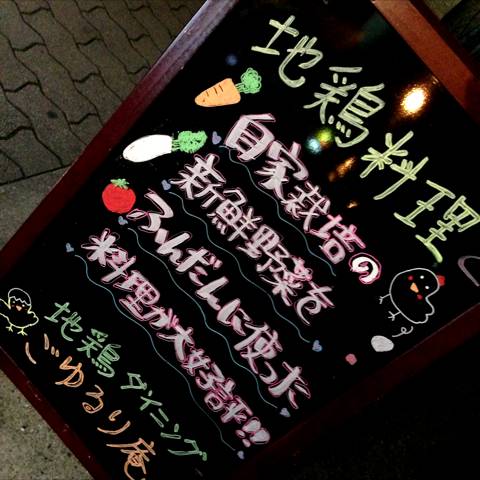 地鶏料理
自家栽培の
新鮮野菜を
ふんだんに使った
料理が大好評!!
地鶏ダイニング
ごゆるり庵